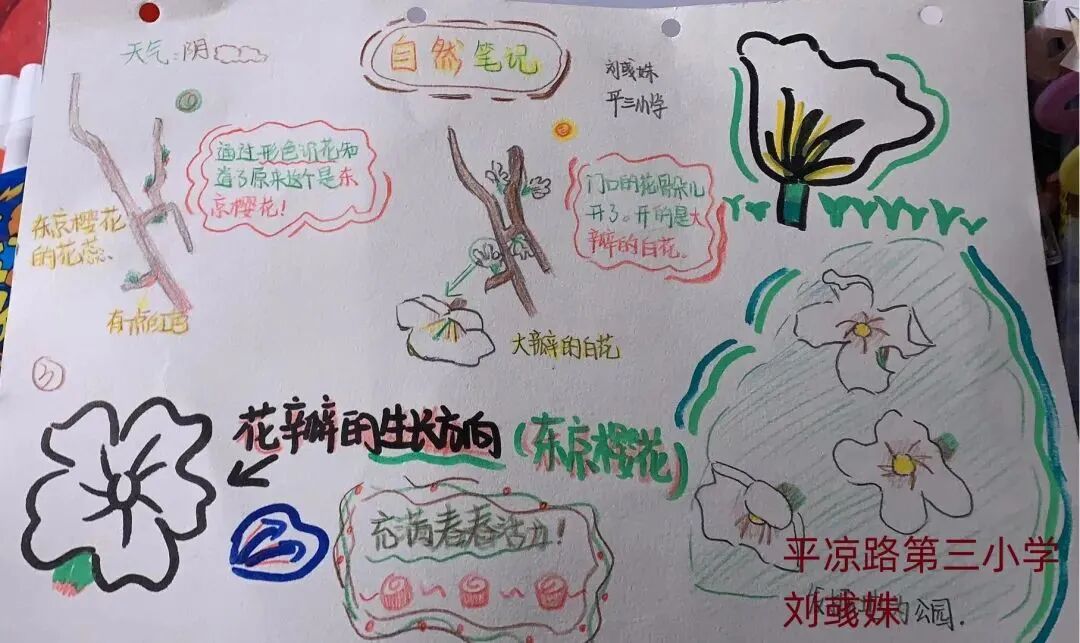 天气:阴
自然笔记
刘彧姝
平三小学
通过形色识花知
道了原来这个是东
京樱花!
门口的花骨朵儿
开了。开的是大
瓣的白花.
东京樱花
的花蕊、
有点红色
大瓣的白花
花瓣的生长方向(东京樱花)
充满春春活力!
平凉路第三小学
刘彧姝
公园.